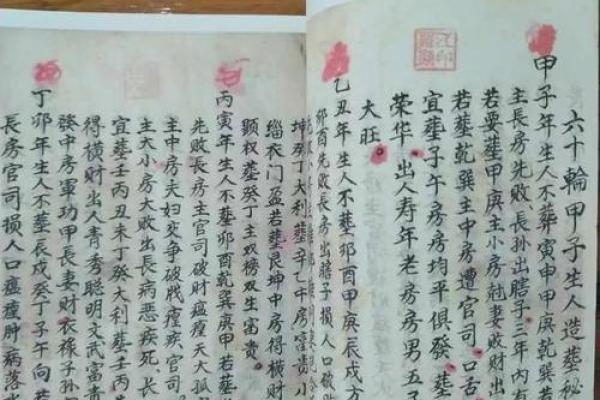 六十輪甲子生人造塟秘
甲子年生人不葬寅申甲庚乾巽
主長房先敗長孫出瞎子三年內有
若要塟甲庚主小房尅妻敗財出
若塟乾巽主中房遭官司口舌
宜塟子午房房均平俱發塟
榮华出人寿年老房房男五子
大旺
乙丑年生人不塟卯酉甲庚辰戌方
卯酉先敗長房出瞎子損人口敗
坤癸丁大利塟辛乙中房富貴小
緇衣门盈若塟艮坤中房得横財
顕权塟癸丁主双榜双生富贵
丙寅年生人不塟卯酉乾巽庚甲若塟
先敗長房主官司破財瘟癀天大孤
主中房夫妇交争破戝瘧疾官司
主大小房大敗出長病惡疾死長
宜塟壬丙丑未丁癸大利塟壬丙
得横財出人青秀聪明文武富貴
發中房軍功甲長妻財衣禄子孙
丁卯年生人不塟辰戌癸丁子午向塟
長房官司損人口瘟癀肿病落